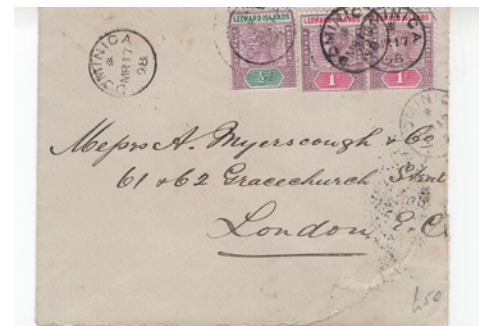 DOMINICA
MR 17
98
LEEWARD ISLANDS
½
LEEWARD ISLANDS
1
LEEWARD ISLANDS
1
DOMINICA
MR 17
98
Messrs A. Myerscough & Co
61 & 62 Gracechurch Street
London E.C
£50